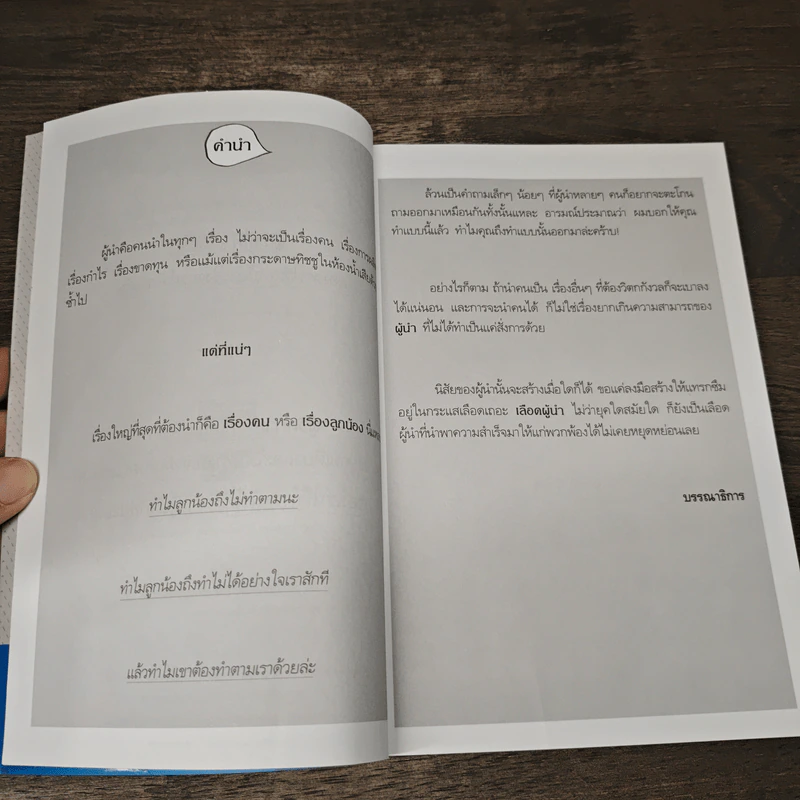 คำนำ
ผู้นำคือคนนำในทุกๆ เรื่อง ไม่ว่าจะเป็นเรื่องคน
เรื่องกำไร เรื่องขาดทุน หรือแม้แต่เรื่องกระดาษทิชชูในห้องน้ำเสียด้วย
ซ้ำไป
แต่ที่แน่ๆ
เรื่องใหญ่ที่สุดที่ต้องนำก็คือ เรื่องคน หรือ เรื่องลูกน้อง
ทำไมลูกน้องถึงไม่ทำตามนะ
ทำไมลูกน้องถึงทำไม่ได้อย่างใจเราสักที
แล้วทำไมเขาต้องทำตามเราด้วยล่ะ
ล้วนเป็นคำถามเล็กๆ น้อยๆ ที่ผู้นำหลายๆ คนก็อยากจะตะโกน
ถามออกมาเหมือนกันทั้งนั้นแหละ อารมณ์ประมาณว่า ผมบอกให้คุณ
ทำแบบนี้แล้ว ทำไมคุณถึงทำแบบนั้นออกมาล่ะคร้าบ!
อย่างไรก็ตาม ถ้านำคนเป็น เรื่องอื่นๆ ที่ต้องวิตกกังวลก็จะเบาลง
ได้แน่นอน และการจะนำคนได้ ก็ไม่ใช่เรื่องยากเกินความสามารถของ
ผู้นำ ที่ไม่ได้ทำเป็นแค่สั่งการด้วย
นิสัยของผู้นำนั้นจะสร้างเมื่อใดก็ได้ ขอแค่ลงมือสร้างให้แทรกซึม
อยู่ในกระแสเลือดเถอะ เลือดผู้นำ ไม่ว่ายุคใดสมัยใด ก็ยังเป็นเลือด
ผู้นำที่นำพาความสำเร็จมาให้แก่พวกพ้องได้ไม่เคยหยุดหย่อนเลย
บรรณาธิการ